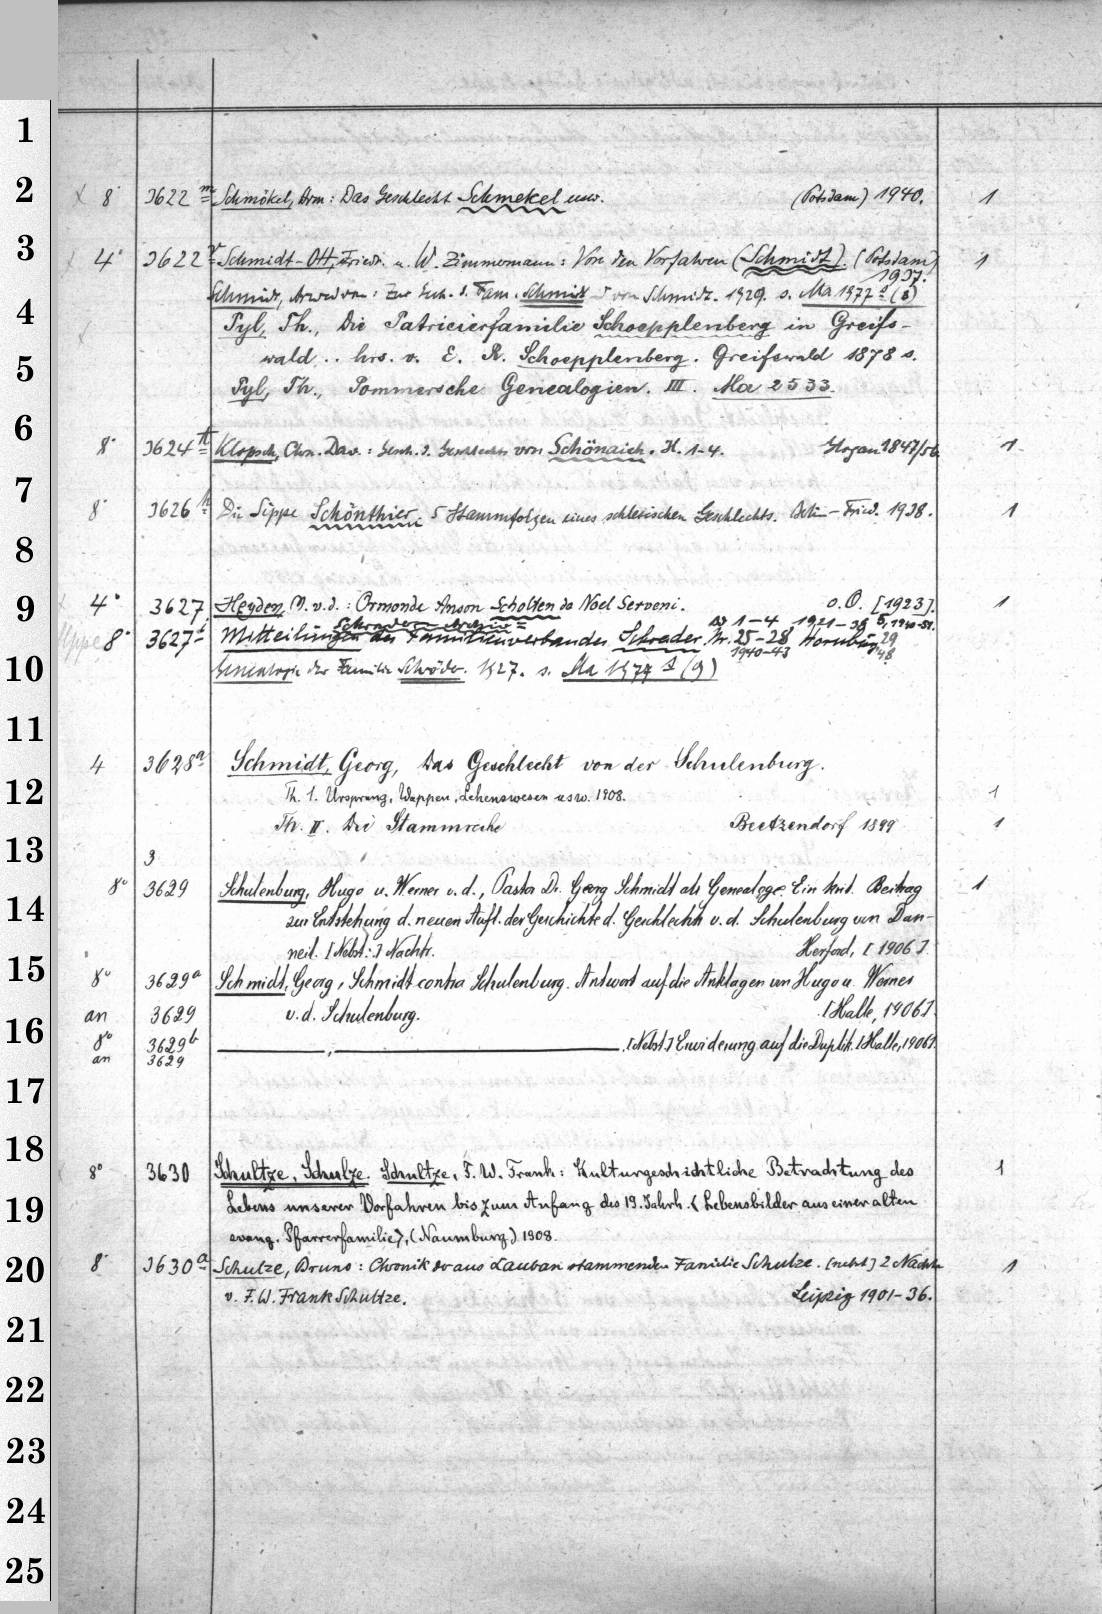 1
2
8° 3622 m Schmökel, Arm: Das Geschlecht Schmekel usw. (Potsdam) 1940. 1
3
4° 3622 Schmidt-Ott, Friedr. u. W. Zimmermann: Von den Vorfahren (Schmidt). (Potsdam) 1937. 1
Schmidt, Arwed von: Zur Gesch. d. Fam. Schmidt von Schmidt. 1929. s. Ma 1977
4
Pyl, Th., Die Patricierfamilie Schoepplenberg in Greifs-
5
wald .. hrs. v. E. R. Schoepplenberg. Greifswald 1878 s.
Pyl, Th., Pommersche Genealogien. III. Ma 2533.
6
8° 3624 Klopsch, Chrn. Dav.: Gesch. d. Geschlechts von Schönaich. H. 1-4. Glogau 1847/56 1
7
8° 3626 h Die Sippe Schönthier. 5 Stammfolgen eines schlesischen Geschlechts. Berlin-Fried. 1938. 1
8
9
4° 3627 Heyden, M. v. d.: Ormonde Anson Scholten da Noel Serveni. o. O. [1923]. 1
Schradern Archiv =
1-4 1921-38
8° 3627 i Mitteilungen des Familienverbandes Schrader. Nr. 25-28 Hornburg
1940-43
10
Genealogie der Familie Schröder. 1927. s. Ma 1974 (9)
11
4 3628a Schmidt, Georg, Das Geschlecht von der Schulenburg.
12
Th. 1. Ursprung, Wappen, Lehenswesen usw. 1908. 1
Th. II. Die Stammreihe Beetzendorf 1899 1
13
3
8° 3629 Schulenburg, Hugo u. Werner v. d., Pastor Dr. Georg Schmidt als Genealoge. Ein krit. Beitrag 1
14
zur Entstehung d. neuen Aufl. der Geschichte d. Geschlechts v. d. Schulenburg von Dan-
neil. [Nebst:] Nachtr. Herford, [1906].
15
8° 3629a Schmidt, Georg, Schmidt contra Schulenburg. Antwort auf die Anklagen von Hugo u. Werner
an 3629 v. d. Schulenburg. [Halle, 1906].
16
8° 3629b —, — . [Nebst:] Erwiderung auf die Duplik. [Halle, 1906].
an 3629
17
18
8° 3630 Schultze, Schulze. Schultze, F. W. Frank: Kulturgeschichtliche Betrachtung des 1
19
Lebens unserer Vorfahren bis zum Anfang des 19. Jahrh. <Lebensbilder aus einer alten
evang. Pfarrerfamilie>, (Naumburg) 1908.
20
8° 3630a Schulze, Bruno: Chronik der aus Lauban stammenden Familie Schulze. [nebst] 2 Nachtr. 1
v. F. W. Frank Schultze. Leipzig 1901-36.
21
22
23
24
25